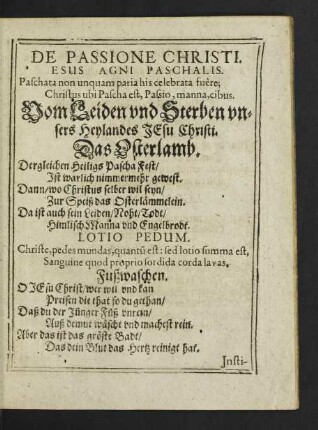 DE PASSIONE CHRISTI.
ESUS AGNI PASCHALIS.
Paschata non unquam paria his celebrata fuêre;
Christus ubi Pascha est, Passio, manna, cibus.
Vom Leiden vnd Sterben vn-
sers Heylandes JEsu Christi.
Das Osterlamb.
Dergleichen Heiligs Pascha Fest/
Ist warlich nimmermehr gewest.
Dann/wo Christus selber wil seyn/
Zur Speiß das Osterlämmelein.
Da ist auch sein Leiden/Noht/Todt/
Himlisch Manna vnd Engelbrodt.
LOTIO PEDUM.
Christe, pedes mundas, quantũ est: sed lotio summa est,
Sanguine quod proprio sordida corda lavas.
Fußwaschen.
O JEsu Christ/wer wil vnd kan
Preisen die that so du gethan/
Daß du der Jünger Füß vnrein/
Auß demut wäscht vnd machest rein.
Aber das ist das gröste Badt/
Das dein Blut das Hertz reinigt hat.
Insti-